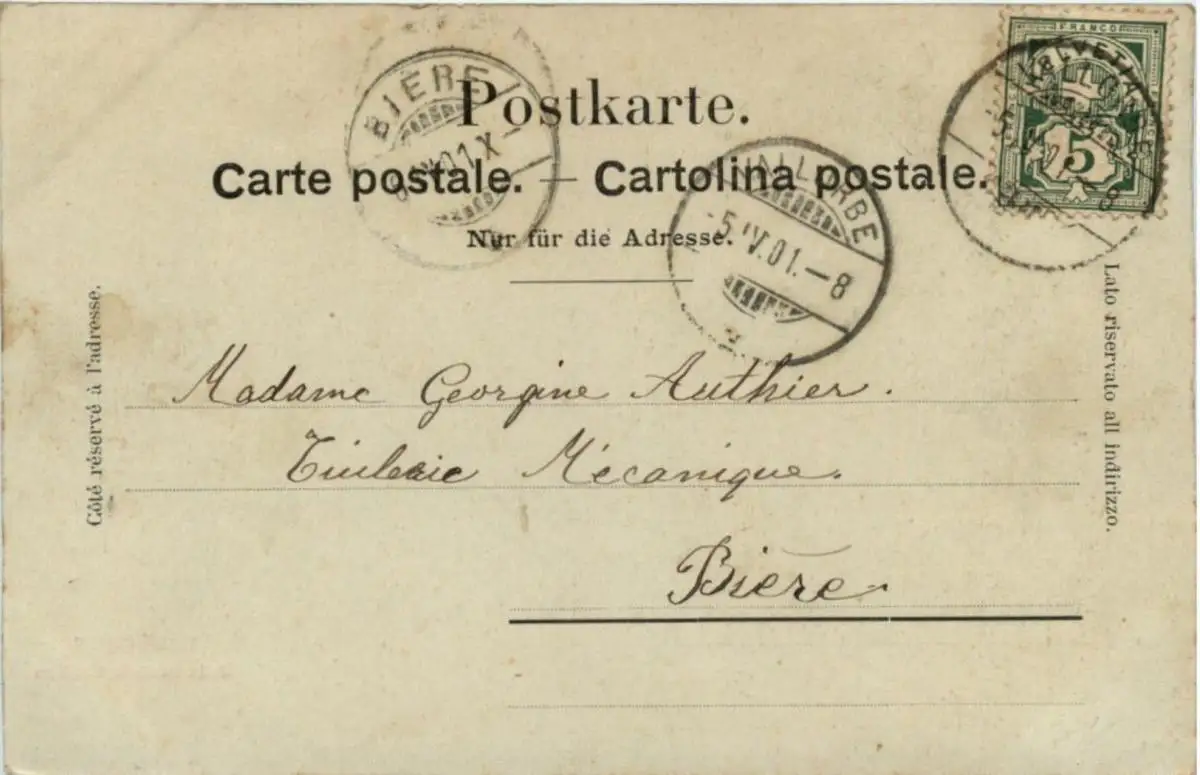 FRANCO
HELVETIA
5
BIÈRE
Postkarte.
Carte postale. — Cartolina postale.
VALLORBE
5.IV.01.–8
Nur für die Adresse.
Côté réservé à l'adresse.
Lato riservato all indirizzo.
Madame Georgine Authier.
Tuilerie Mécanique.
Bière